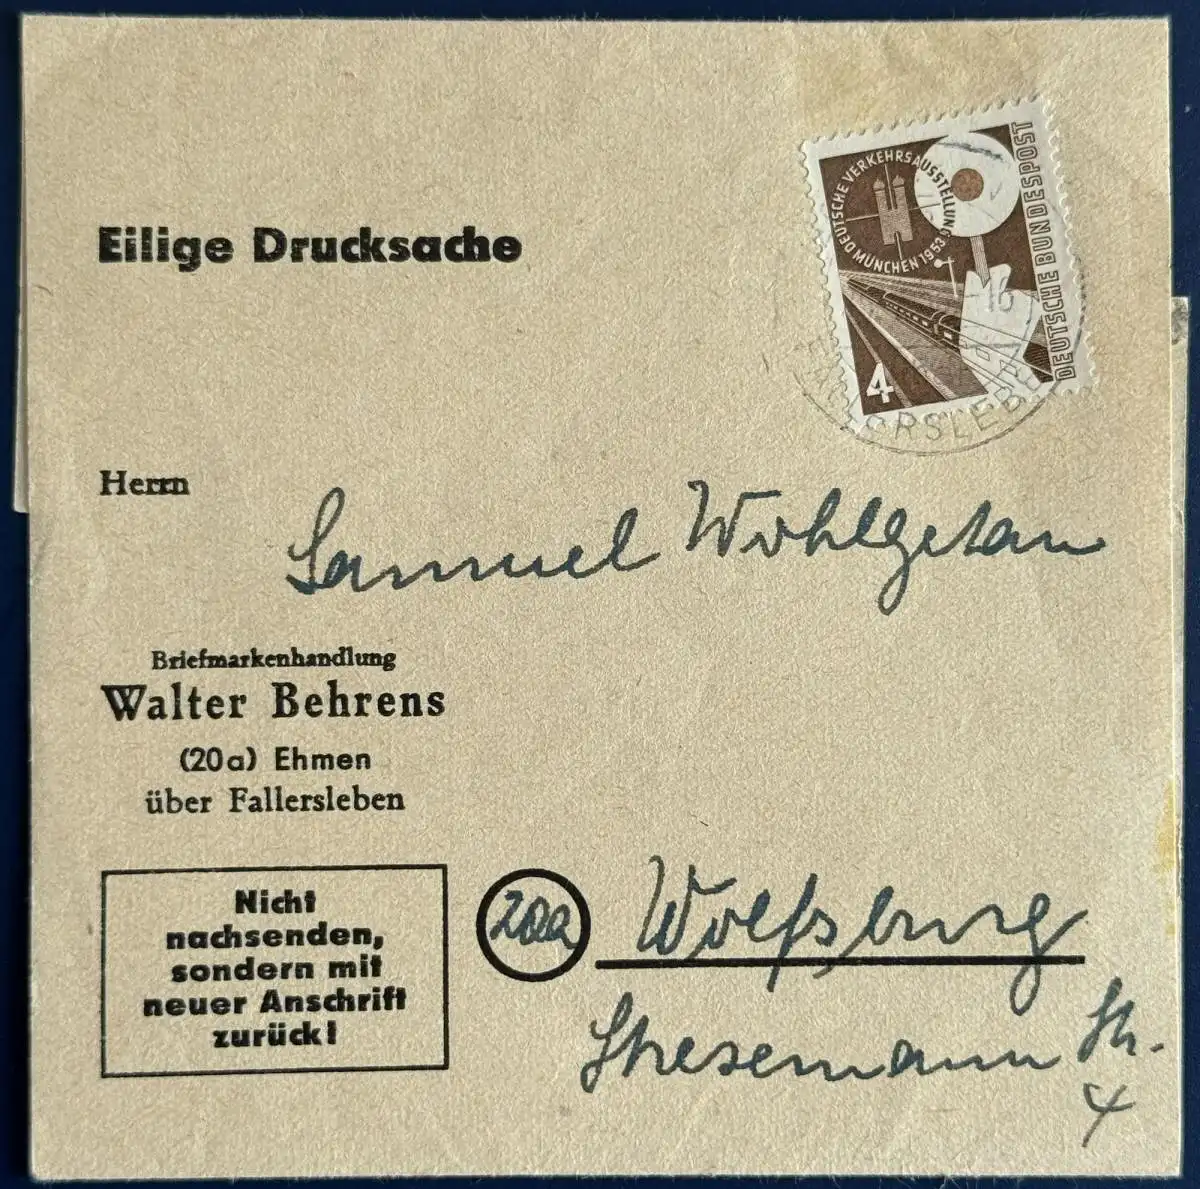 Eilige Drucksache
DEUTSCHE VERKEHRSAUSSTELLUNG
MÜNCHEN 1953
DEUTSCHE BUNDESPOST
4
16
FALLERSLEBEN
Herrn
Samuel Wohlgetan
Briefmarkenhandlung
Walter Behrens
(20a) Ehmen
über Fallersleben
Nicht
nachsenden,
sondern mit
neuer Anschrift
zurück!
20a Wolfsburg
Stresemann Str.
4